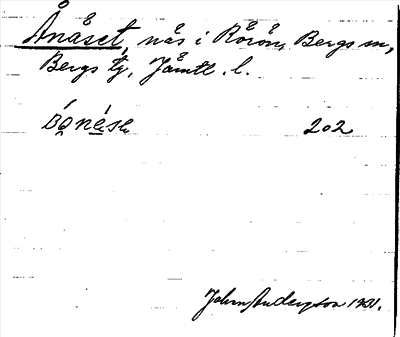 Ånåset, nås i Rörön, Bergs sn,
Bergs tg, Jämtl. l.
202
John Anderzson 1931.